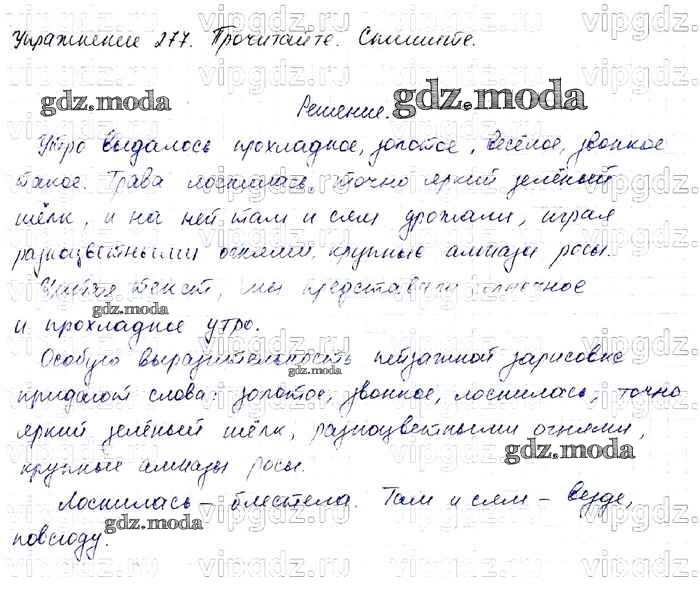 Упражнение 277. Прочитайте. Спишите.
Решение.
Утро выдалось прохладное, золотое, весёлое, звонкое
такое. Трава лоснилась, точно яркий зелёный
шёлк, и на ней там и сям дрожали, играя
разноцветными огнями, крупные алмазы росы.
Читая текст, мы представили солнечное
и прохладное утро.
Особую выразительность пейзажной зарисовке
придают слова: золотое, звонкое, лоснилась, точно
яркий зелёный шёлк, разноцветными огнями,
крупные алмазы росы.
Лоснилась – блестела. Там и сям – везде,
повсюду.
gdz.moda
gdz.moda
gdz.moda
gdz.moda
gdz.moda
gdz.moda
vipgdz.ru